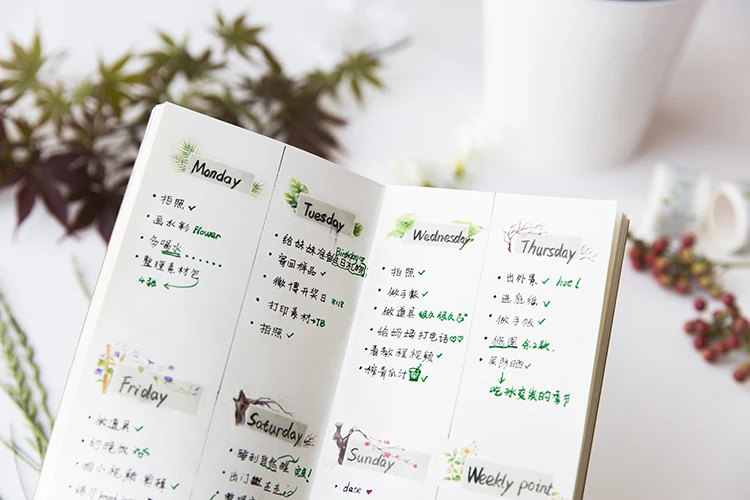 Monday
• 拍照 ✓
• 画水彩 Flower
• 多喝水
• 整理素材包
4张
Tuesday
• 给妹妹准备生日礼物
Birthday
• 寄回样品 ✓
• 微博开奖日
• 打印素材→TB
• 拍照 ✓
Wednesday
• 拍照 ✓
• 做手帐 ✓
• 做道具 很久很久
• 给妈妈打电话 ♡♡
• 看教程视频 ✓
• 榨青瓜汁 ✓
Thursday
• 出外景 ✓ hot!
• 逛庭院 ✓
• 做手帐 ✓
• 修图
• 买防晒 ✓
吃冰变美的季节
Friday
• 做道具 ✓
• 约晚饭
• 拍小视频 剪辑 ✓
Saturday
• 睡到自然醒
• 出门
Sunday
date ♥
Weekly point